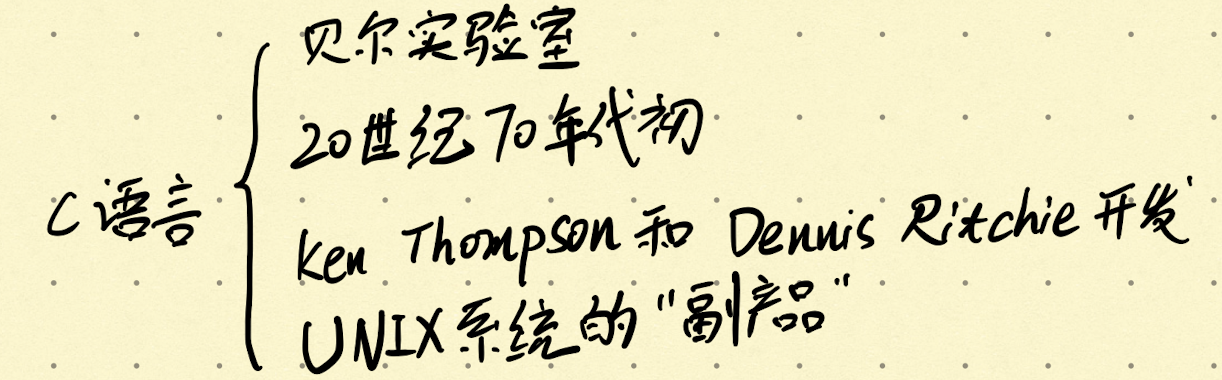 C语言
贝尔实验室
20世纪70年代初
Ken Thompson 和 Dennis Ritchie 开发
UNIX系统的“副产品”